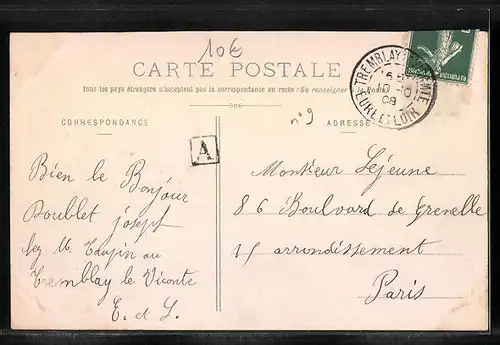 10€
CARTE POSTALE
Tous les pays étrangers n'acceptent pas la correspondance au recto (Se renseigner à la Poste)
n° 9
CORRESPONDANCE
ADRESSE
A
TREMBLAY
EURE ET LOIR
08
Bien le Bonjour
Doublet josept
chez M. Taupin au
Tremblay le Vicomte
E. et L.
Monsieur Lejeune
86 Boulvard de Grenelle
15 arrondissement
Paris